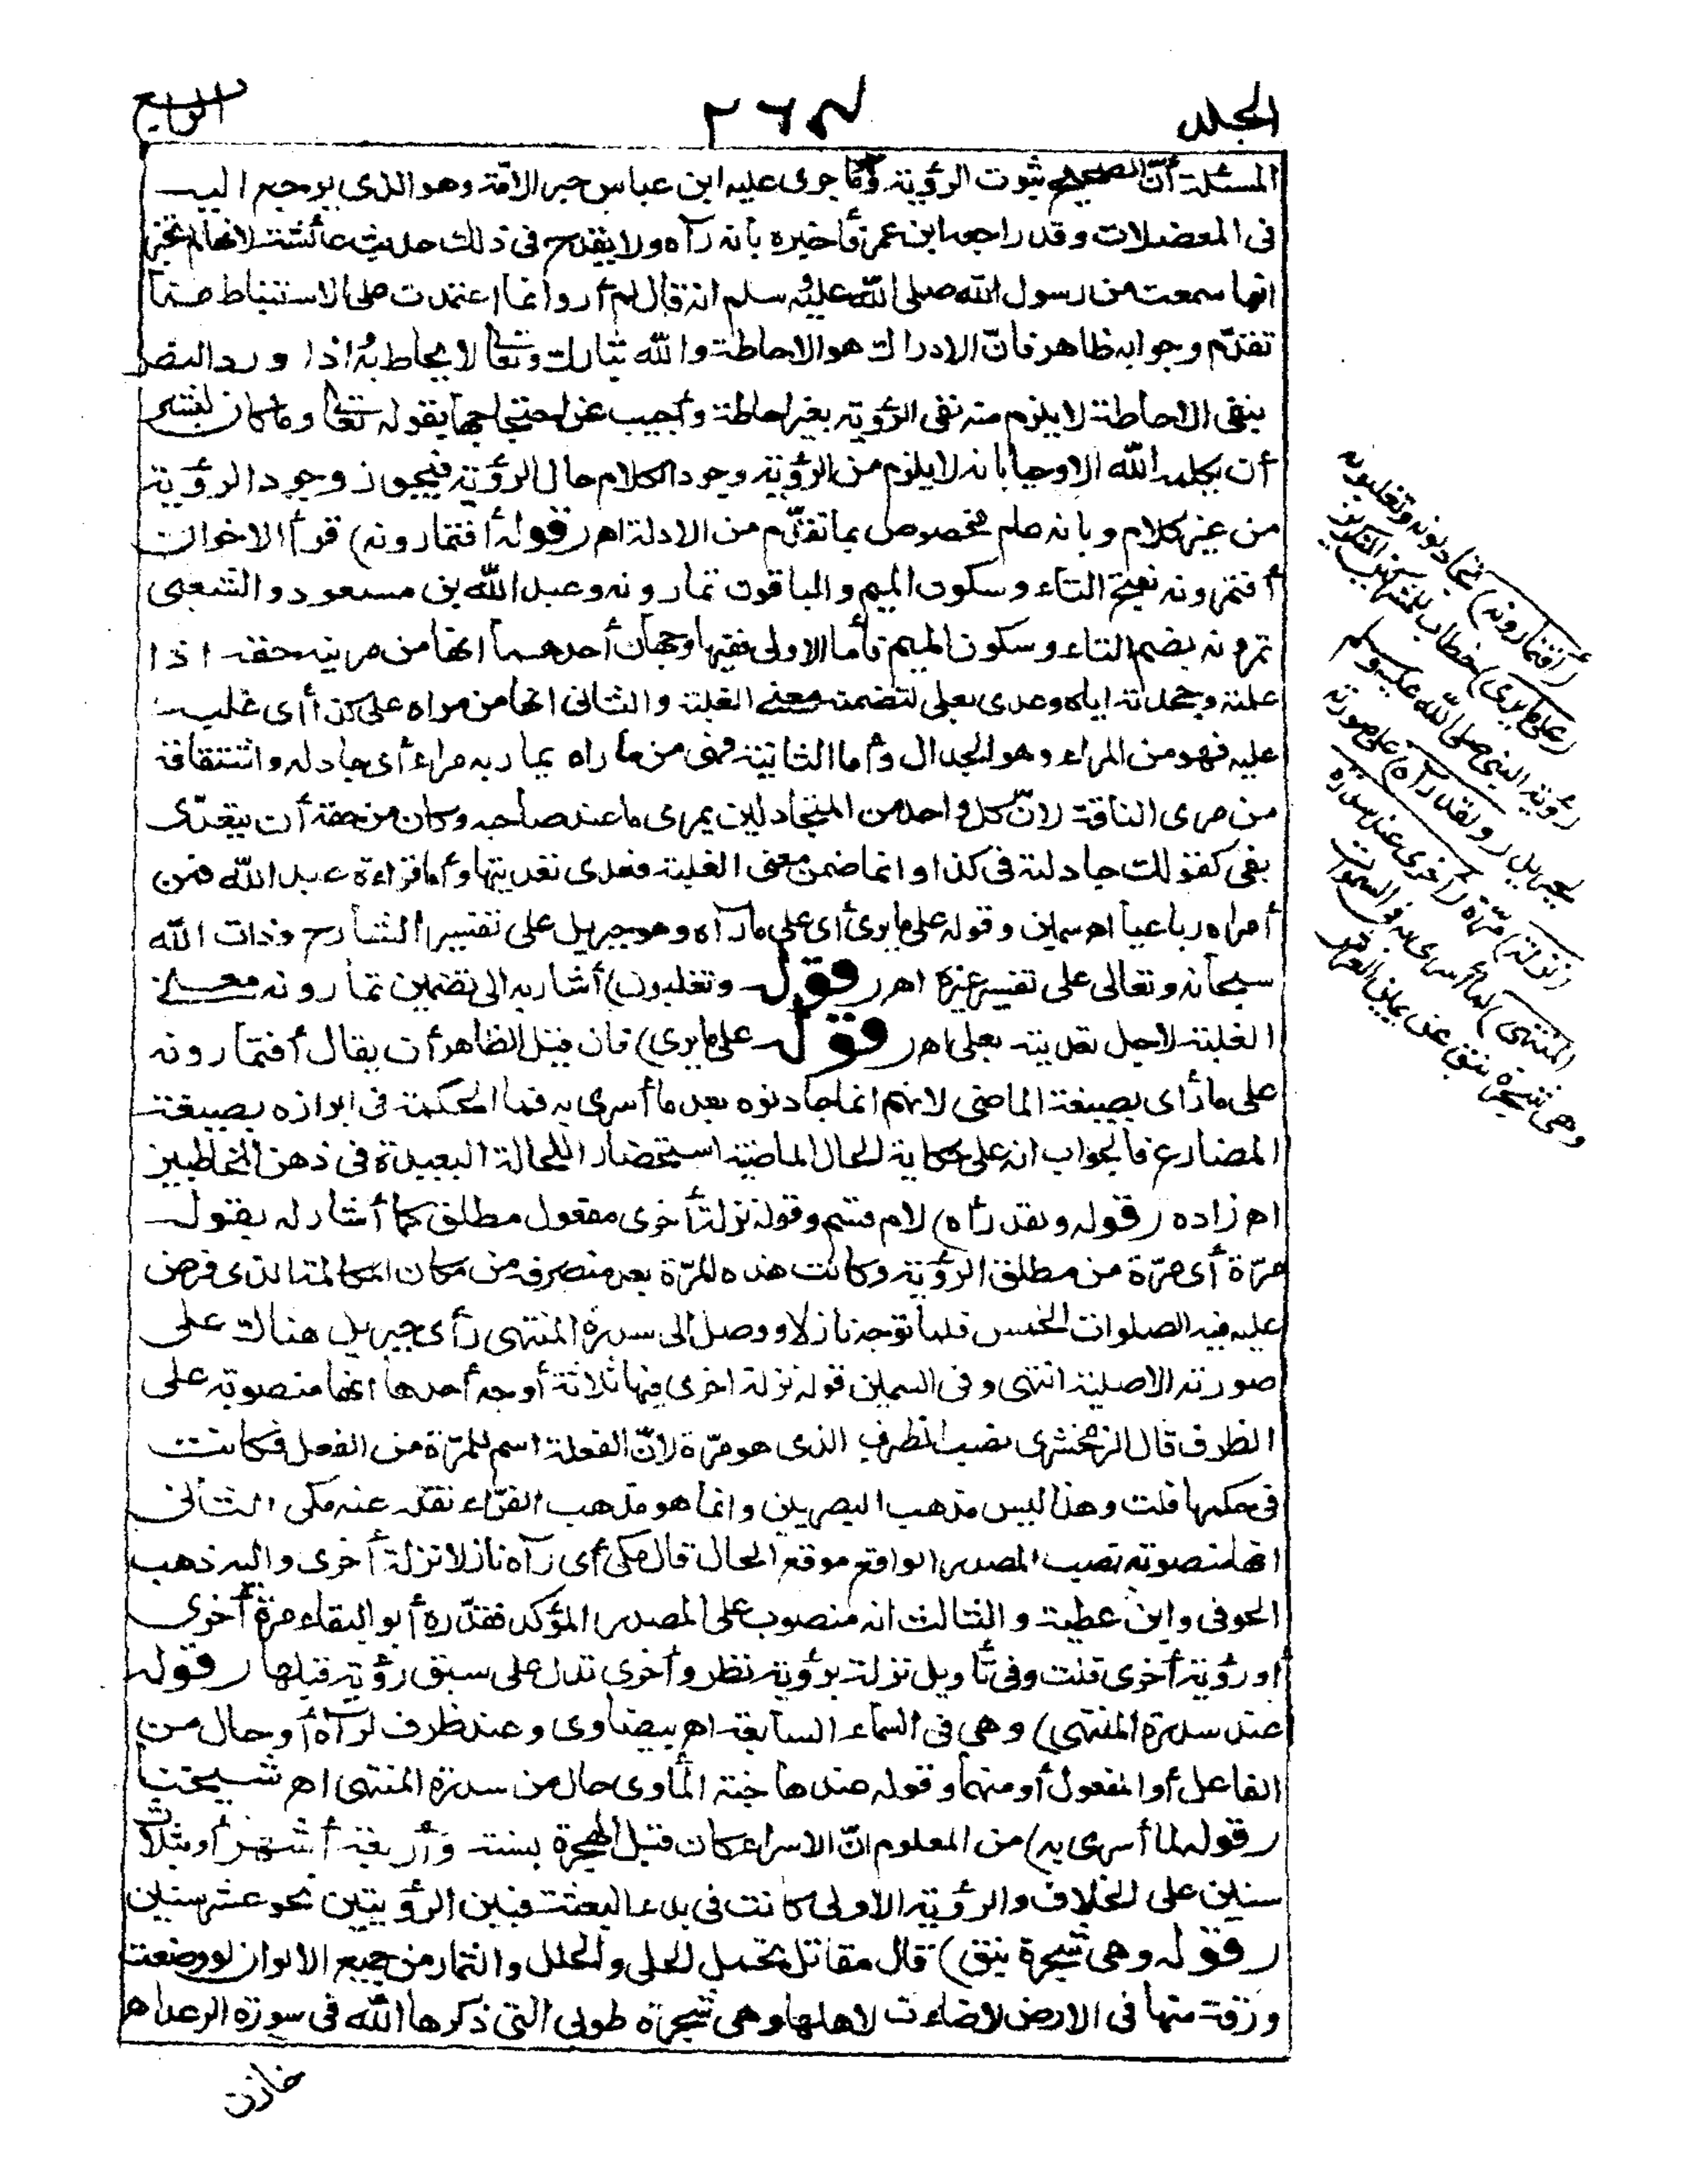 المجلد
الرابع
المسئلة أنّ الصحيح ثبوت الرؤية وكما جرى عليه ابن عباس حبر الامّة وهو الذى يرجع اليه
فى المعضلات وقد راجعه ابن عمر فأخبره بأنه رآه ولا يقدح فى ذلك حديث عائشة لانها لم تخبر
انها سمعت من رسول الله صلى الله عليه وسلم انه قال لم أر وانما اعتمدت على الاستنباط مما
تقدّم وجوابه ظاهر فانّ الادراك هو الاحاطة والله تبارك وتعالى لا يحاط به اذا ورد النص
بنفى الاحاطة لا يلزم منه نفى الرؤية بغير احاطة وأجيب عن احتجاجها بقوله تعالى وما كان لبشر
أن يكلمه الله الا وحيا بانه لا يلزم من الرؤية وجود الكلام حال الرؤية فيجوز وجود الرؤية
من غير كلام وبانه عام مخصوص بما تقدّم من الادلة اهـ (قوله أفتمارونه) قرأ الاخوان
أفتمرونه بفتح التاء وسكون الميم والباقون تمارونه وعبد الله بن مسعود والشعبى
تمرونه بضم التاء وسكون الميم فأما الاولى ففيها وجهان أحدهما انها من مريته حقه اذا
علمته وجحدته اياه وعدى بعلى لتضمنه معنى الغلبة والثانى انها من مراه على كذا أى غلبه
عليه فهو من المراء وهو الجدال وأما الثانية فهى من ماراه يماريه مراء أى جادله واشتقاقه
من مرى الناقة لانّ كل واحد من المتجادلين يمرى ما عند صاحبه وكان من حقه أن يتعدّى
بفى كقولك جادلته فى كذا وانما ضمن معنى الغلبة فعدى تعديتها وأما قراءة عبد الله فمن
أمراه رباعيا اهـ سمين وقوله على ما يرى أى على ما رآه وهو جبريل على تفسير الشارح وذات الله
سبحانه وتعالى على تفسير غيره اهـ (قوله وتغلبونه) أشار به الى تضمين تمارونه معنى
الغلبة لاجل تعديته بعلى اهـ (قوله على ما يرى) فان قيل الظاهر أن يقال أفتمارونه
على ما رأى بصيغة الماضى لانهم انما جادلوه بعد ما أسرى به فما الحكمة فى ابرازه بصيغة
المضارع فالجواب انه على حكاية الحال الماضية استحضارا للحالة البعيدة فى ذهن المخاطبين
اهـ زاده (قوله ولقد رآه) لام قسم وقوله نزلة أخرى مفعول مطلق كما أشار له بقوله
مرّة أى مرّة من مطلق الرؤية وكانت هذه المرّة بعد منصرفه من مكان المكالمة الذى فرض
عليه فيه الصلوات الخمس فلما توجه نازلا ووصل الى سدرة المنتهى رأى جبريل هناك على
صورته الاصلية انتهى وفى السمين قوله نزلة اخرى فيها ثلاثة أوجه أحدها انها منصوبة على
الظرف قال الزمخشرى نصب الظرف الذى هو مرّة لانّ الفعلة اسم للمرّة من الفعل فكانت
فى حكمها قلت وهذا ليس مذهب البصريين وانما هو مذهب الفرّاء نقله عنه مكى الثانى
انها منصوبة نصب المصدر الواقع موقع الحال قال مكى أى رآه نازلا نزلة أخرى واليه ذهب
الحوفى وابن عطية والثالث انه منصوب على المصدر المؤكد فقدّره أبو البقاء مرة أخرى
أو رؤية أخرى قلت وفى تأويل نزلة برؤية نظر وأخرى تدل على سبق رؤية قبلها (قوله
عند سدرة المنتهى) وهى فى السماء السابعة اهـ بيضاوى وعند ظرف لرآه أو حال من
الفاعل أو المفعول أو منهما وقوله عندها جنة المأوى حال من سدرة المنتهى اهـ شيخنا
(قوله لما أسرى به) من المعلوم انّ الاسراء كان قبل الهجرة بسنة وأربعة أشهر أو بثلاث
سنين على الخلاف والرؤية الاولى كانت فى بدء البعثة فبين الرؤيتين نحو عشر سنين
(قوله وهى شجرة نبق) قال مقاتل تحمل الحلى والحلل والثمار من جميع الالوان لو وضعت
ورقة منها فى الارض لاضاءت لاهلها وهى شجرة طوبى التى ذكرها الله فى سورة الرعد اهـ
خازن
(أفتمارونه) تجادلونه وتغلبونه
(على ما يرى) خطاب للمشركين المنكرين
رؤية النبى صلى الله عليه وسلم
لجبريل (ولقد رآه) على صورته
(نزلة) مرّة (أخرى عند سدرة
المنتهى) لما أسرى به فى السموات
وهى شجرة نبق عن يمين العرش